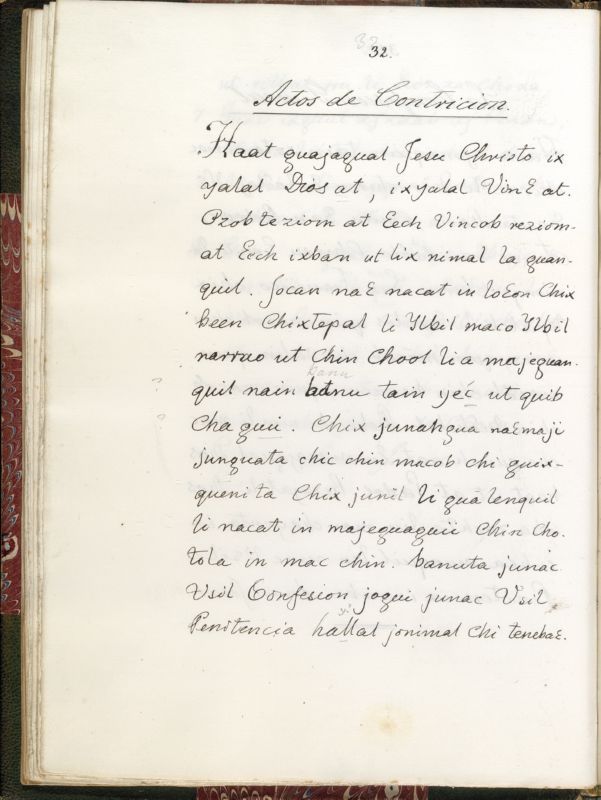 32.
Actos de Contricion.
Haat guajagual Jesu Christo ix
yalal Dios at, ixyalal VinƐ at.
Pzobteziom at Eech Vincob reziom-
at Eech ixban ut lix nimal la guan-
quil. Jocan naƐ nacat in loƐon Chix
been Chixtepal li Ylbil maco Ylbil
narruo ut Chin Chool li a majeguan-
quil nain banu tain yeć ut quib
Cha guii. Chix junahgua naƐmaji
junguata chic chin macob chi guix-
queni ta Chix junil li gualenquil
li nacat in majeguaguii Chin Cho-
tola in mac chin. banuta junac
Vsil Confesion jogui junac Vsil
Penitencia jonimal chi tenebaƐ.